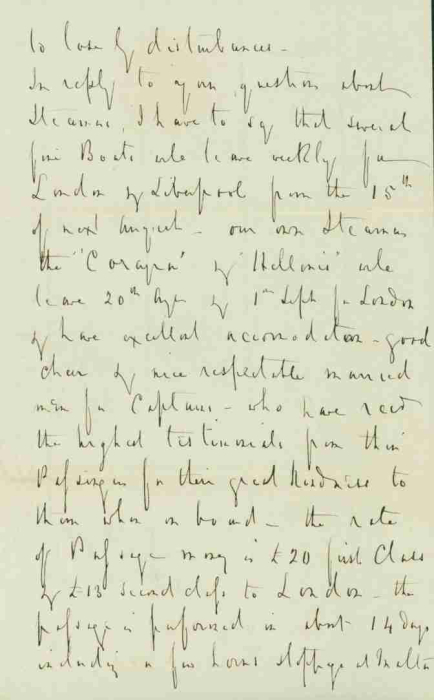 to lose by disturbances -
In reply to your question about
Steamers, I have to say that several
fine Boats will leave weekly for
London & Liverpool from the 15th
of next August - our own Steamers
the "Corsyra" & "Hellenis" will
leave 20th Augt & 1st Septr for London
& have excellent accomodation - good
cheer & nice respectable married
men for Captains - who have recd
the highest testimonials from their
Passengers for their great kindness to
them when on board - the rate
of Passage money is £20 first Class
& £13 second class to London - the
passage is performed in about 14 days
including a few hours stoppage at Malta